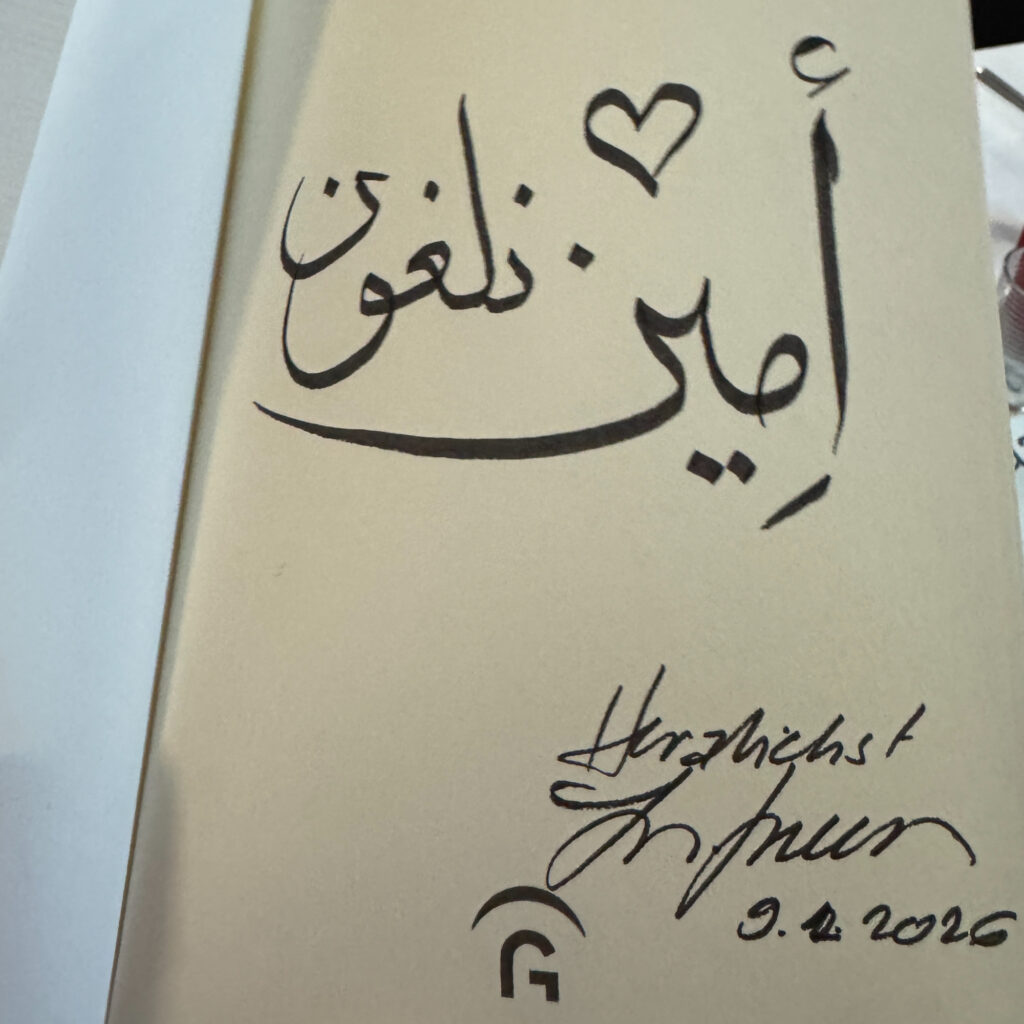 أِمين نلغون
Herzlichst
9.2.2026